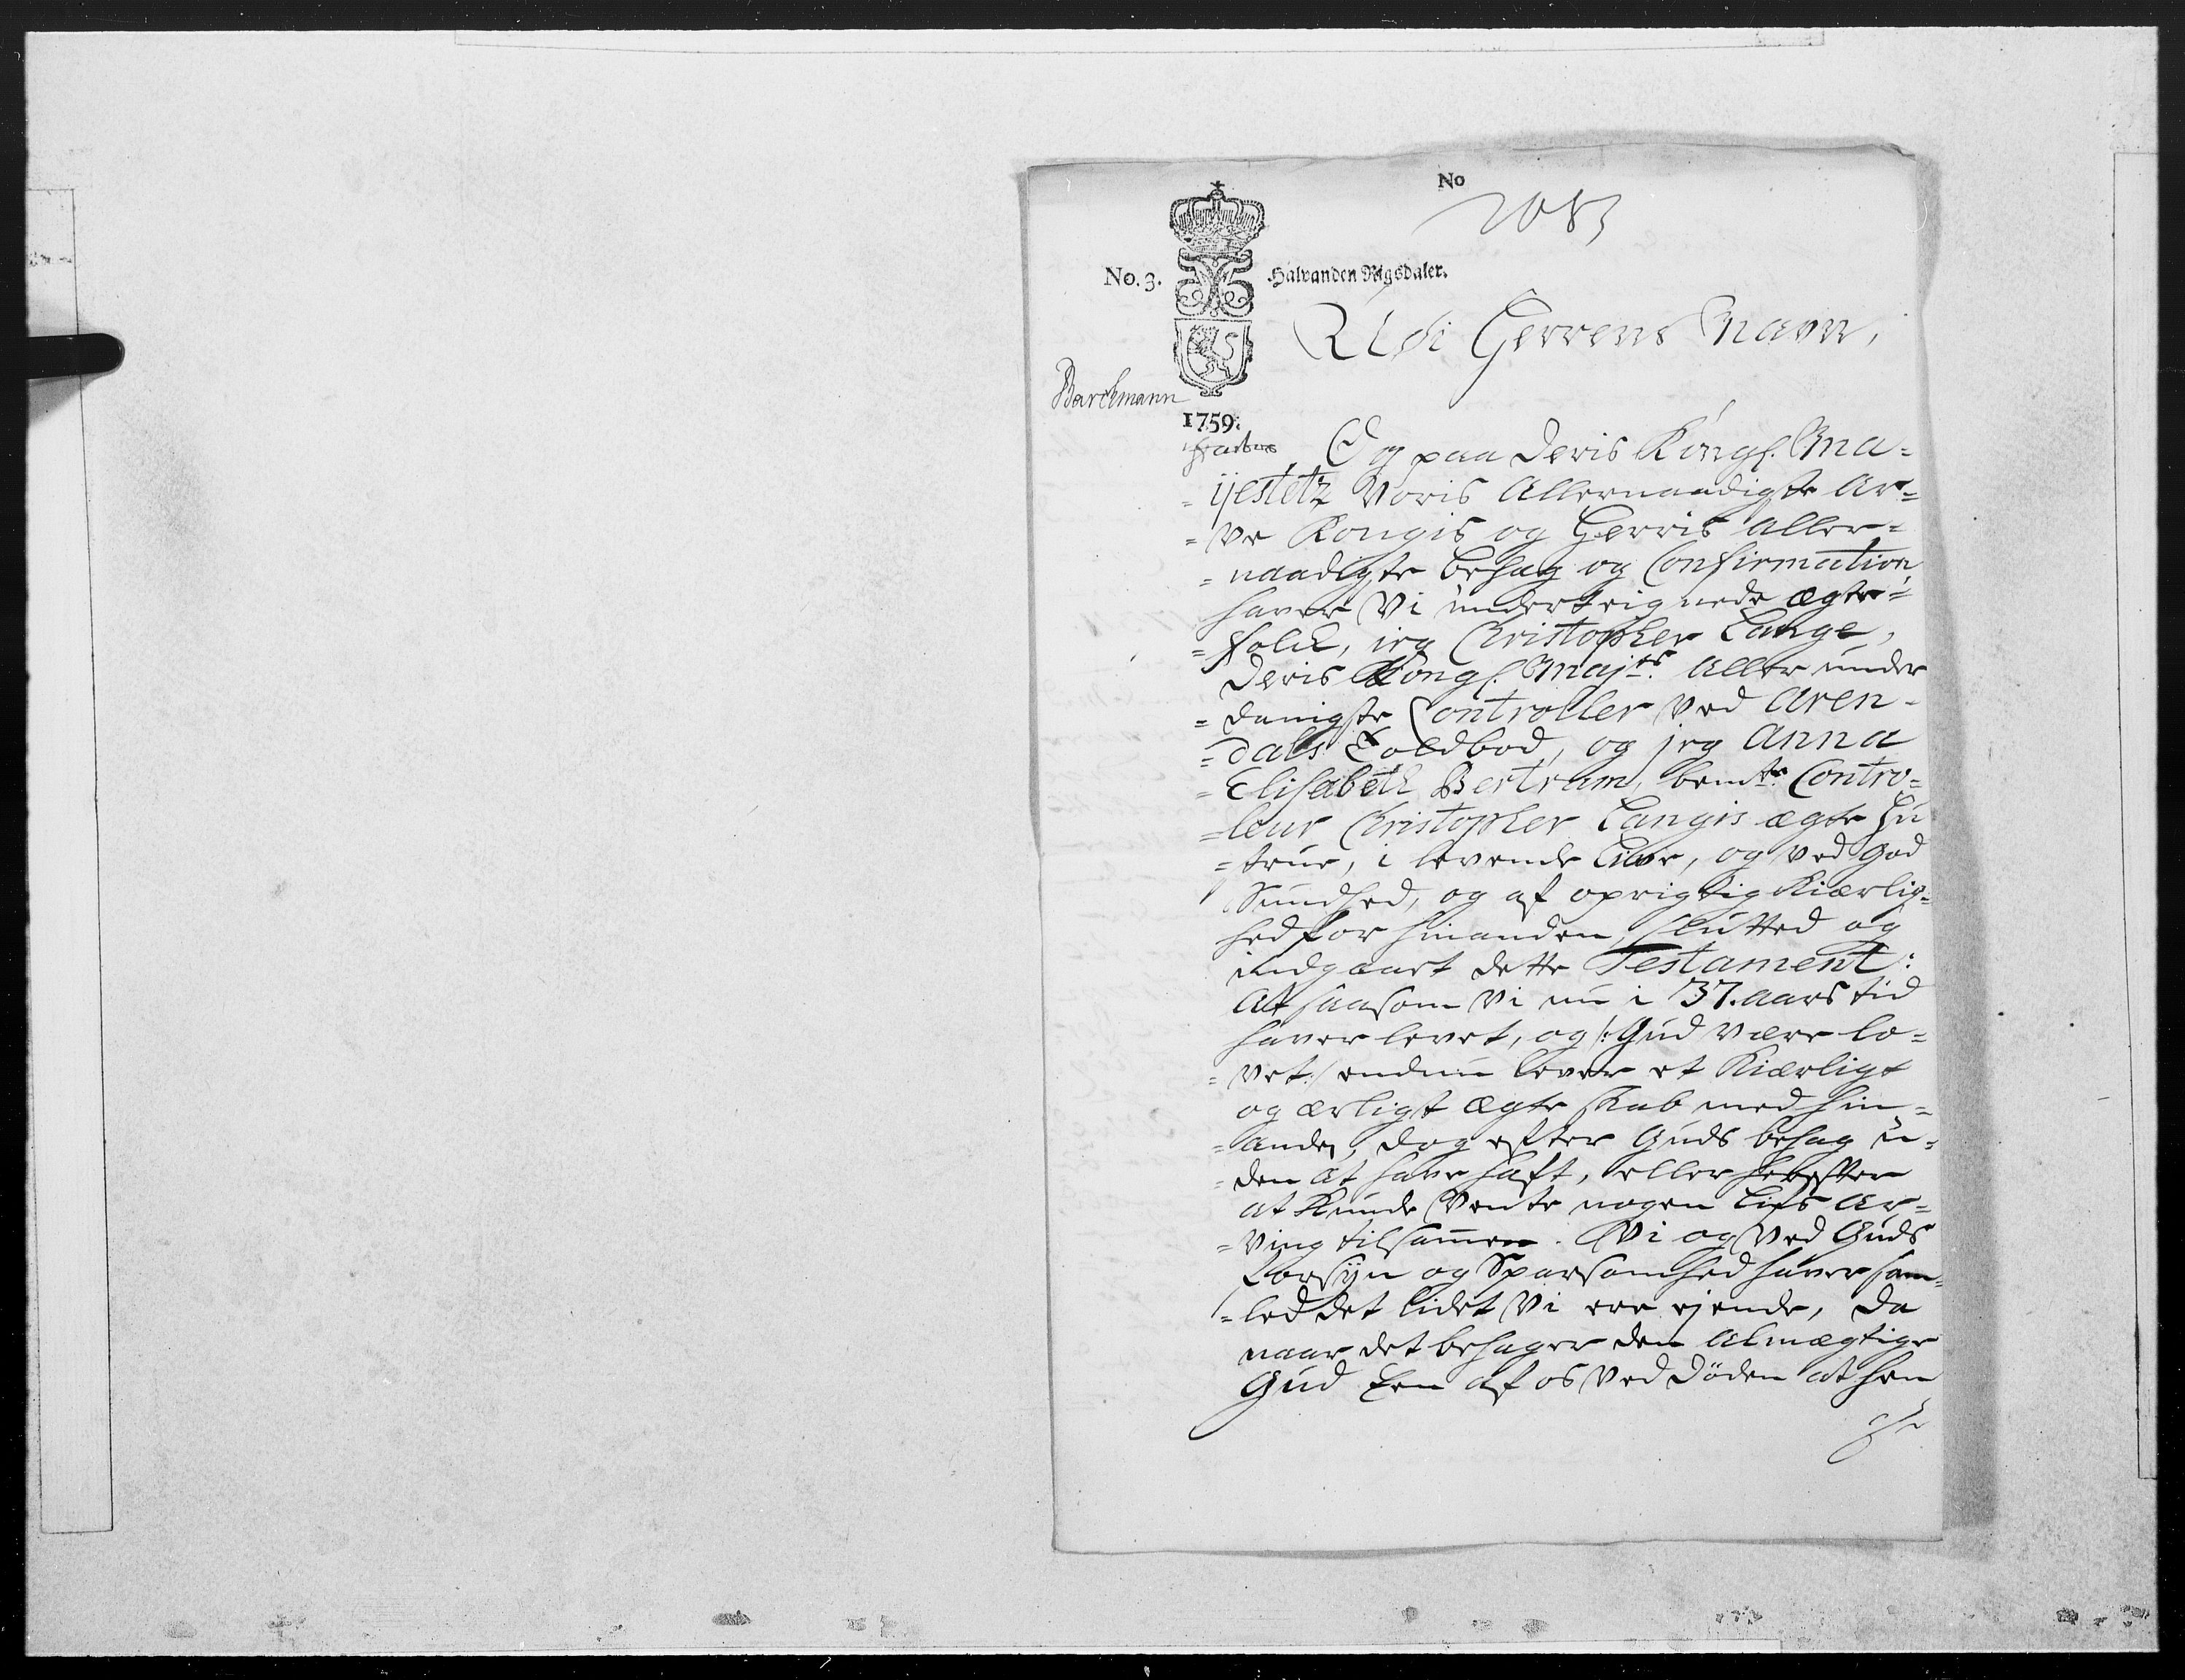 No
2083
No. 3. Halvanden Rigsdaler.
Udi Herrens Navn,
Barchmann
1759.
Og paa Deris Kongl. Ma-
-ijestetz Voris Allernaadigste Ar-
-ve Kongis og Herris Aller-
-naadigste behag og Confirmation
haver Vi underteignede Ægte-
-folk, ieg Christopher Lange,
Deris Kongl. Majts. Aller under
-danigste Controller ved Aren-
-dals Toldbod, og jeg Anna
-Elisabeth Bertram, bemte. Contro-
-leur Christopher Langis ægte Hu
-strue, i levende Live, og ved God
Sundhed, og af oprigtig Kiærlig-
hed for hinanden, slutted og
indgaaet dette Testament:
At saasom Vi nu i 37. aars tid
haver levet, og /: Gud være lo-
-vet :/ endnu lever et Kiærligt
og ærligt Ægteskab med hin-
-anden, dog efter Guds behag u-
-den at have haft, eller herefter
at Kunde vente nogen Lifs Ar-
-ving tilsammen. Vi og ved Guds
Forsÿn og Sparsomhed haver sam-
-led det lidet Vi ere ejende, da
naar det behager den Almægtige
Gud Een af os ved Døden at hen